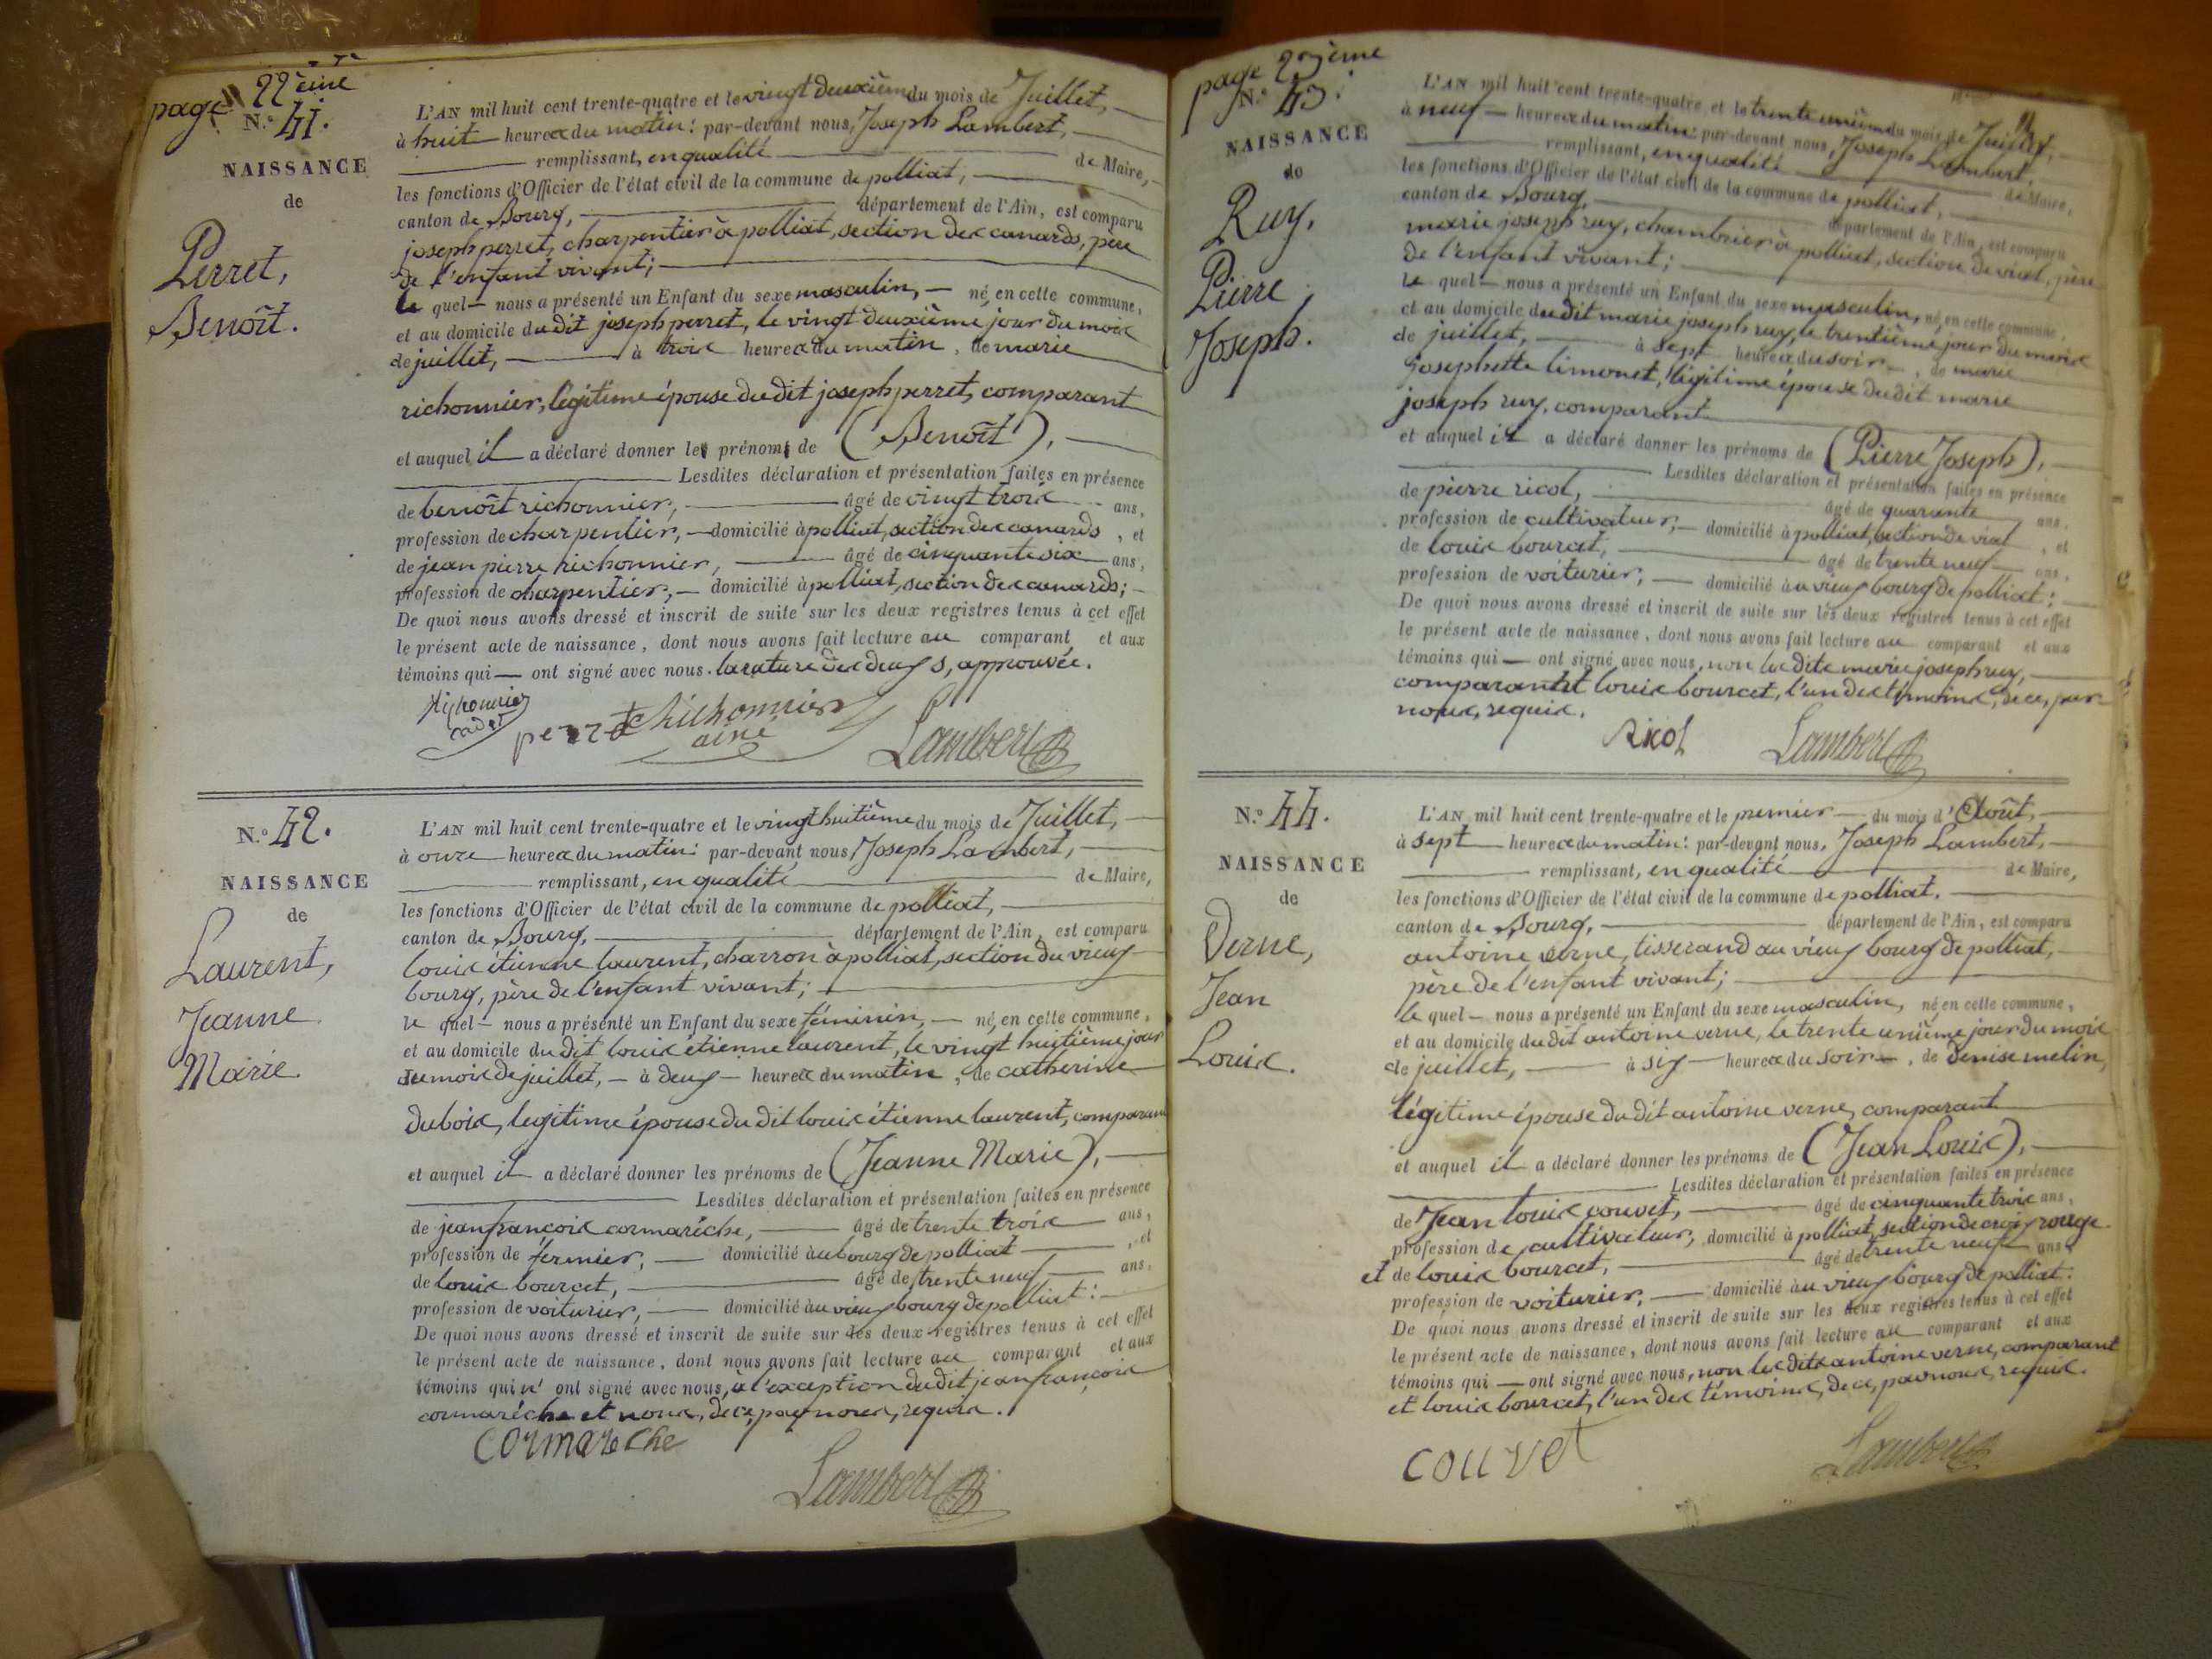 page 22ème
N.° 41.
NAISSANCE
de
Perret,
Benoît.
L'AN mil huit cent trente-quatre et le vingt deuxième du mois de Juillet,
à huit heures du matin: par-devant nous, Joseph Lambert,
remplissant, en qualité de Maire,
les fonctions d'Officier de l'état civil de la commune de polliat,
canton de Bourg, département de l'Ain, est comparu
joseph perret, charpentier à polliat, section des canards, père
de l'enfant vivant;
le quel nous a présenté un Enfant du sexe masculin, né en cette commune,
et au domicile du dit joseph perret, le vingt deuxième jour du mois
de juillet, à trois heures du matin, de marie
richonnier, légitime épouse du dit joseph perret, comparant
et auquel il a déclaré donner le prénom de (Benoît),
Lesdites déclaration et présentation faites en présence
de benoît richonnier, âgé de vingt trois ans,
profession de charpentier, domicilié à polliat, section des canards, et
de jean pierre richonnier, âgé de cinquante six ans,
profession de charpentier, domicilié à polliat, section des canards;
De quoi nous avons dressé et inscrit de suite sur les deux registres tenus à cet effet
le présent acte de naissance, dont nous avons fait lecture au comparant et aux
témoins qui ont signé avec nous. la rature des deux s, approuvée.
Richonnier
cadet
perret
Richonnier
ainé
Lambert
N.° 42.
NAISSANCE
de
Laurent,
Jeanne
Marie
L'AN mil huit cent trente-quatre et le vingt huitième du mois de Juillet,
à onze heures du matin: par-devant nous, Joseph Lambert,
remplissant, en qualité de Maire,
les fonctions d'Officier de l'état civil de la commune de polliat,
canton de Bourg, département de l'Ain, est comparu
louis étienne laurent, charron à polliat, section du vieux
bourg, père de l'enfant vivant;
le quel nous a présenté un Enfant du sexe féminin, né en cette commune,
et au domicile du dit louis étienne laurent, le vingt huitième jour
du mois de juillet, à deux heures du matin, de catherine
dubois, légitime épouse du dit louis étienne laurent, comparant
et auquel il a déclaré donner les prénoms de (Jeanne Marie),
Lesdites déclaration et présentation faites en présence
de jean françois cormarèche, âgé de trente trois ans,
profession de fermier, domicilié au bourg de polliat, et
de louis bourcet, âgé de trente neuf ans,
profession de voiturier, domicilié au vieux bourg de polliat:
De quoi nous avons dressé et inscrit de suite sur les deux registres tenus à cet effet
le présent acte de naissance, dont nous avons fait lecture au comparant et aux
témoins qui n' ont signé avec nous, à l'exception du dit jean françois
cormarèche et nous, de ce, par nous, requis.
cormareche
Lambert
page 23ème
N.° 43.
NAISSANCE
de
Ruy,
Pierre
Joseph.
L'AN mil huit cent trente-quatre et le trente unième du mois de Juillet,
à neuf heures du matin: par-devant nous, Joseph Lambert,
remplissant, en qualité de Maire,
les fonctions d'Officier de l'état civil de la commune de polliat,
canton de Bourg, département de l'Ain, est comparu
marie joseph ruy, chambrier à polliat, section de vial, père
de l'enfant vivant;
le quel nous a présenté un Enfant du sexe masculin, né en cette commune,
et au domicile du dit marie joseph ruy, le trentième jour du mois
de juillet, à sept heures du soir, de marie
josephette limonet, légitime épouse du dit marie
joseph ruy, comparant
et auquel il a déclaré donner les prénoms de (Pierre Joseph),
Lesdites déclaration et présentation faites en présence
de pierre ricol, âgé de quarante ans,
profession de cultivateur, domicilié à polliat, section de vial, et
de louis bourcet, âgé de trente neuf ans,
profession de voiturier, domicilié au vieux bourg de polliat:
De quoi nous avons dressé et inscrit de suite sur les deux registres tenus à cet effet
le présent acte de naissance, dont nous avons fait lecture au comparant et aux
témoins qui ont signé avec nous, non les dits marie joseph ruy,
comparant et louis bourcet, l'un des témoins, de ce, par
nous, requis.
Ricol
Lambert
N.° 44.
NAISSANCE
de
Verne,
Jean
Louis.
L'AN mil huit cent trente-quatre et le premier du mois d'Août,
à sept heures du matin: par-devant nous, Joseph Lambert,
remplissant, en qualité de Maire,
les fonctions d'Officier de l'état civil de la commune de polliat,
canton de Bourg, département de l'Ain, est comparu
antoine verne, tisserand au vieux bourg de polliat,
père de l'enfant vivant;
le quel nous a présenté un Enfant du sexe masculin, né en cette commune,
et au domicile du dit antoine verne, le trente unième jour du mois
de juillet, à six heures du soir, de denise melin,
légitime épouse du dit antoine verne, comparant
et auquel il a déclaré donner les prénoms de (Jean Louis),
Lesdites déclaration et présentation faites en présence
de Jean louis couvet, âgé de cinquante trois ans,
profession de cultivateur, domicilié à polliat, section de croix rouge
et de louis bourcet, âgé de trente neuf ans
profession de voiturier, domicilié au vieux bourg de polliat:
De quoi nous avons dressé et inscrit de suite sur les deux registres tenus à cet effet
le présent acte de naissance, dont nous avons fait lecture au comparant et aux
témoins qui ont signé avec nous, non les dits antoine verne, comparant
et louis bourcet, l'un des témoins, de ce, par nous, requis.
couvet
Lambert